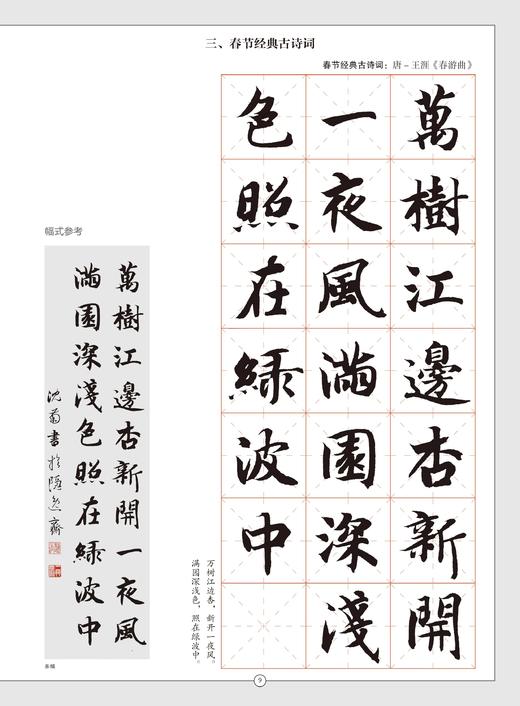 三、春节经典古诗词
春节经典古诗词：唐－王涯《春游曲》
萬樹江邊杏新開
一夜風滿園深淺
色照在綠波中
万树江边杏，新开一夜风。
满园深浅色，照在绿波中。
幅式参考
萬樹江邊杏新開一夜風
滿園深淺色照在綠波中
沈菊書於隱逸齋
条幅
9